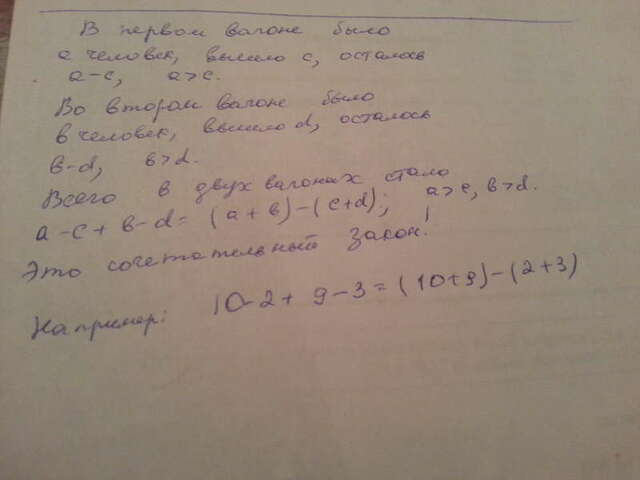 В первом вагоне было
а человек, вышло с, осталось
а-с, а>с.
Во втором вагоне было
в человек, вышло d, осталось
в-d, в>d.
Всего в двух вагонах стало
а-с+в-d=(а+в)-(с+d); а>с, в>d.
Это сочетательный закон!
Например: 10-2+9-3=(10+9)-(2+3)